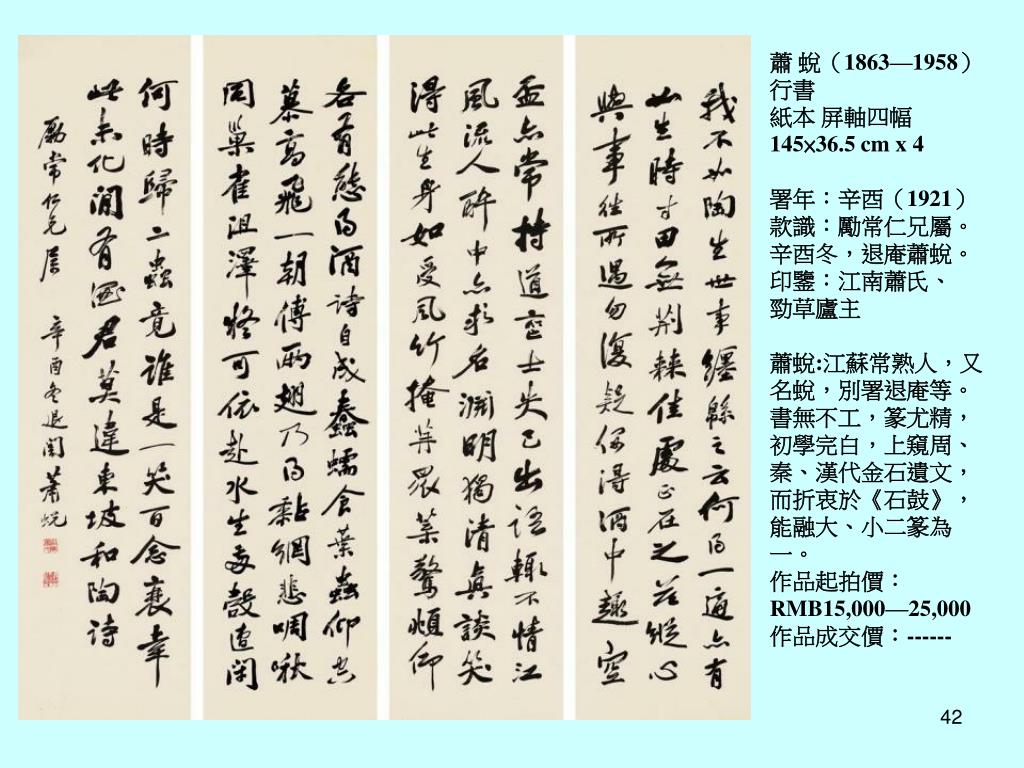 我不如陶生世事纏綿之云何得一適亦有
如生時寸田無荊棘佳處正在之茲縱心
與事往所遇勿復疑偶得酒中趣空
盃亦常持道喪士失己出語輒不情江
風流人醉中亦求名淵明獨清真談笑
得此生身如受風竹掩冉眾葉驚頫仰
各有態得酒詩自成蠢蠕食葉蟲仰空
慕高飛一朝傅兩翅乃得黏網悲啁啾
同巢雀沮澤疑可依赴水生兩殼遭閉
何時歸二蟲竟誰是一笑百念衰幸
此未化間有酒君莫違東坡和陶詩
勵常仁兄屬 辛酉冬退闇蕭蛻
蕭 蛻（1863—1958）
行書
紙本 屏軸四幅
145×36.5 cm x 4
署年：辛酉（1921）
款識：勵常仁兄屬。
辛酉冬，退庵蕭蛻。
印鑒：江南蕭氏、
勁草廬主
蕭蛻:江蘇常熟人，又
名蛻，別署退庵等。
書無不工，篆尤精，
初學完白，上窺周、
秦、漢代金石遺文，
而折衷於《石鼓》，
能融大、小二篆為
一。
作品起拍價：
RMB15,000—25,000
作品成交價：------
42